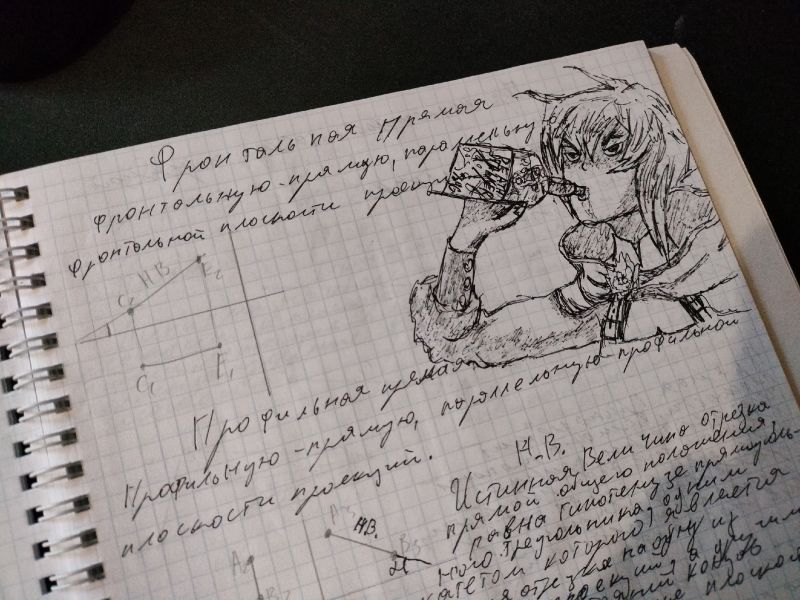 Фронтальная Прямая
фронтальную-прямую, параллельную
фронтольной плоскости проекции
C₂ Н.В. E₂
C₁ E₁
Профильная прямая
Профильную-прямую, параллельную профильной
плоскости проекций.
Н.В.
Истинная Величина отрезка
прямой общего положения,
равна гипотенузе прямоуголь-
ного треугольника, одним
катетом которого является
отрезка на одну из
A₃ Н.В. B₃
A₂
концов
плоской